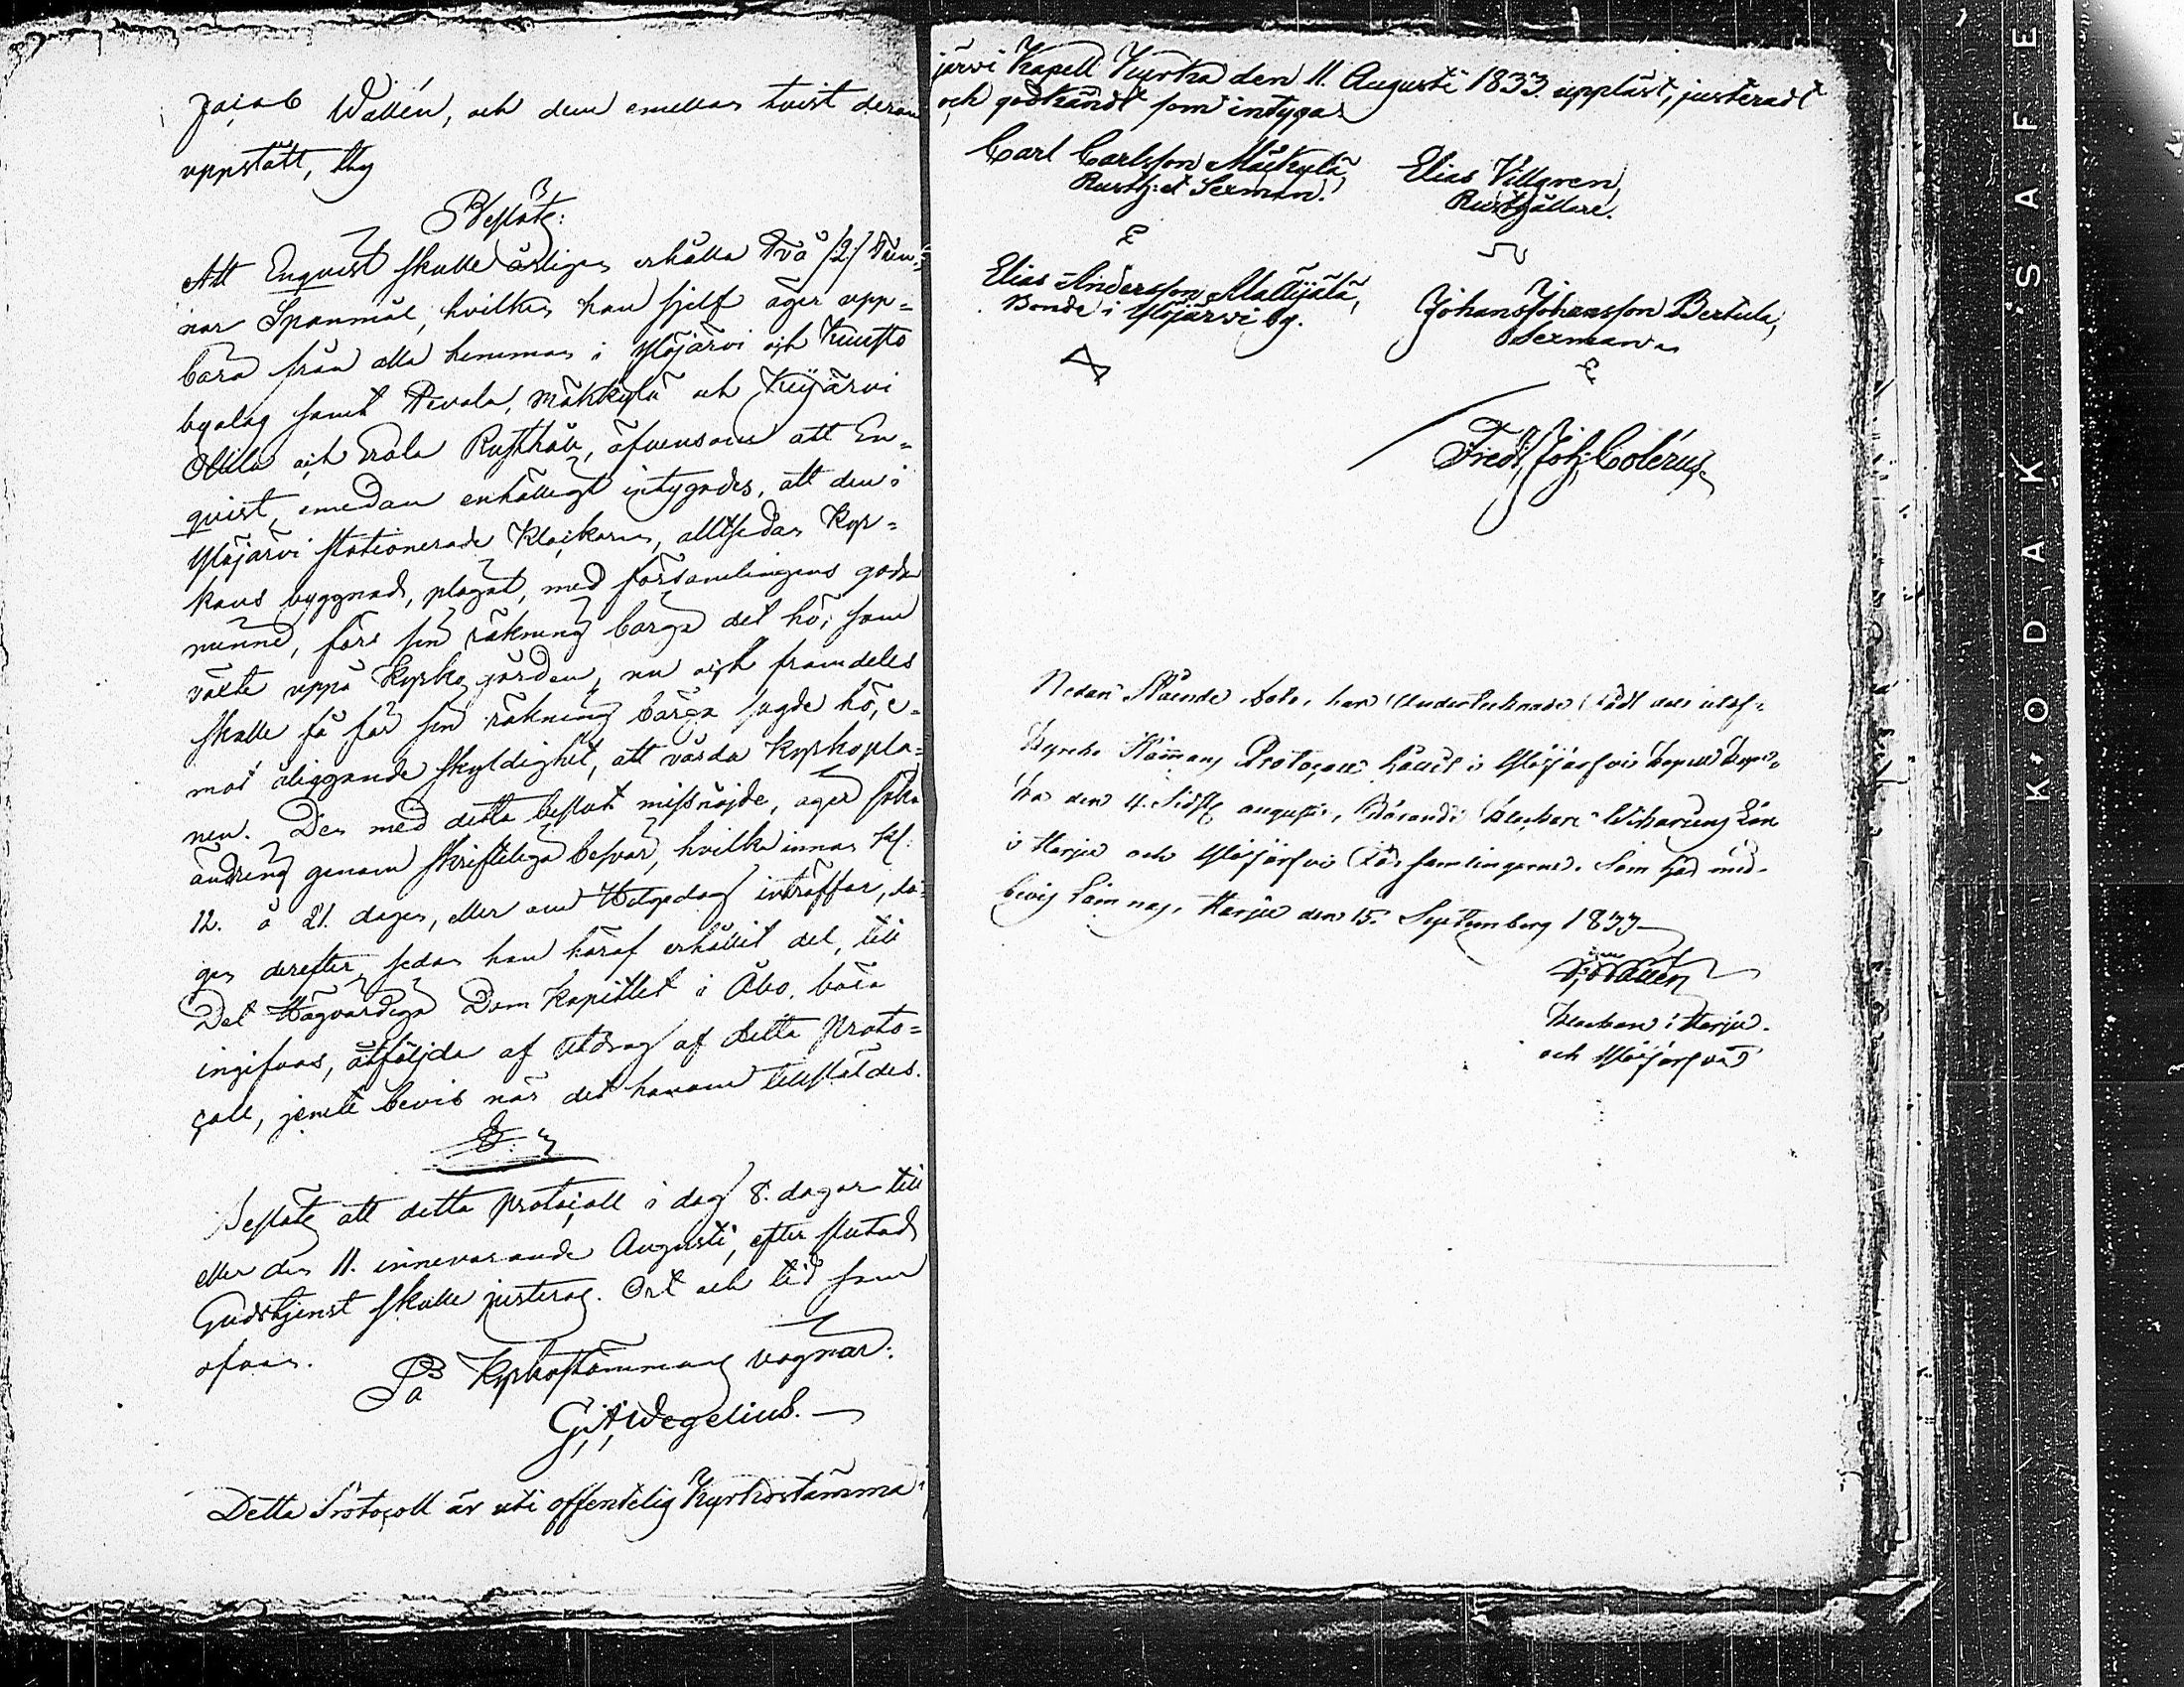 Jacob Wallén, och dem emellan tvist derom
uppstått, thy
Beslöts:
Att Enqvist skulle årligen erhålla två /2/ Tun-
nor Spanmål, hvilken han sjelf äger upp=
bära från alla hemman i Ylöjärvi och Kuusto
byalag samt Pevola, Mäkkylä och Kyijärvi
Ollila och Erola Rusthåll, äfvensom att En=
qvist, emedan enhälligt intygades, att den i
Ylöjärvi stationerade Klockaren, alltsedan Kyr=
kans byggnad, plägat, med församlingens god
minne, före sin räkning berga det hö, som
växte uppå Kyrkogården, nu och framdeles
skulle få för sin räkning berga sagde hö, e=
mot åliggande skyldighet, att vårda kyrkopla=
nen. Den med detta beslut missnöjde, äger söka
ändring genom skrifteliga besvär, hvilka innan Kl:
12. å 21. dagen, eller om Helgedag inträffar, da=
gen derefter, sedan han häraf erhållit del, till
Det Högvärdiga Dom Kapitlet i Åbo, böra
ingifvas, åtföljda af utdrag af detta Proto=
coll, jemte bevis när det honom tillstäldes.
§:
Beslöts att detta Protocoll i dag 8. dagar till
eller den 11. innevarande Augusti, efter slutad
Gudstjenst skulle justeras. Ort och tid som
ofvan.
På Kyrkostämmans vägnar:
G. A. Wegelius.
Detta Protocoll är uti offentelig Kyrkostämma i
järvi Kapell Kyrka den 11. Augusti 1833. uppläst, justeradt
och godkändt som intyga
Carl Carlsson Mäkkylä, Elias Villgren,
Rusth: et Sexman. Rusthållare.
Elias Andersson Mattijälä, Johan Johansson Bertula,
Bonde i Ylöjärvi by. Sexman
Fredr. Joh: Colérus.
Nedan Stående dato, har Undertecknade fådt del utaf
Kyrcko Stämmans Protocoll hållit i Ylöjärfvi Capell Kyr=
ka den 4. Sidstl augusti, Rörande Klockare Lön
i Harju och Ylöjärfvi Församlingarne. Som här med
bevis lämnas. Harju den 15. September 1833
J: Wallén
Klockare i Harju.
och Ylöjärfvi
KODAK 'SAFE